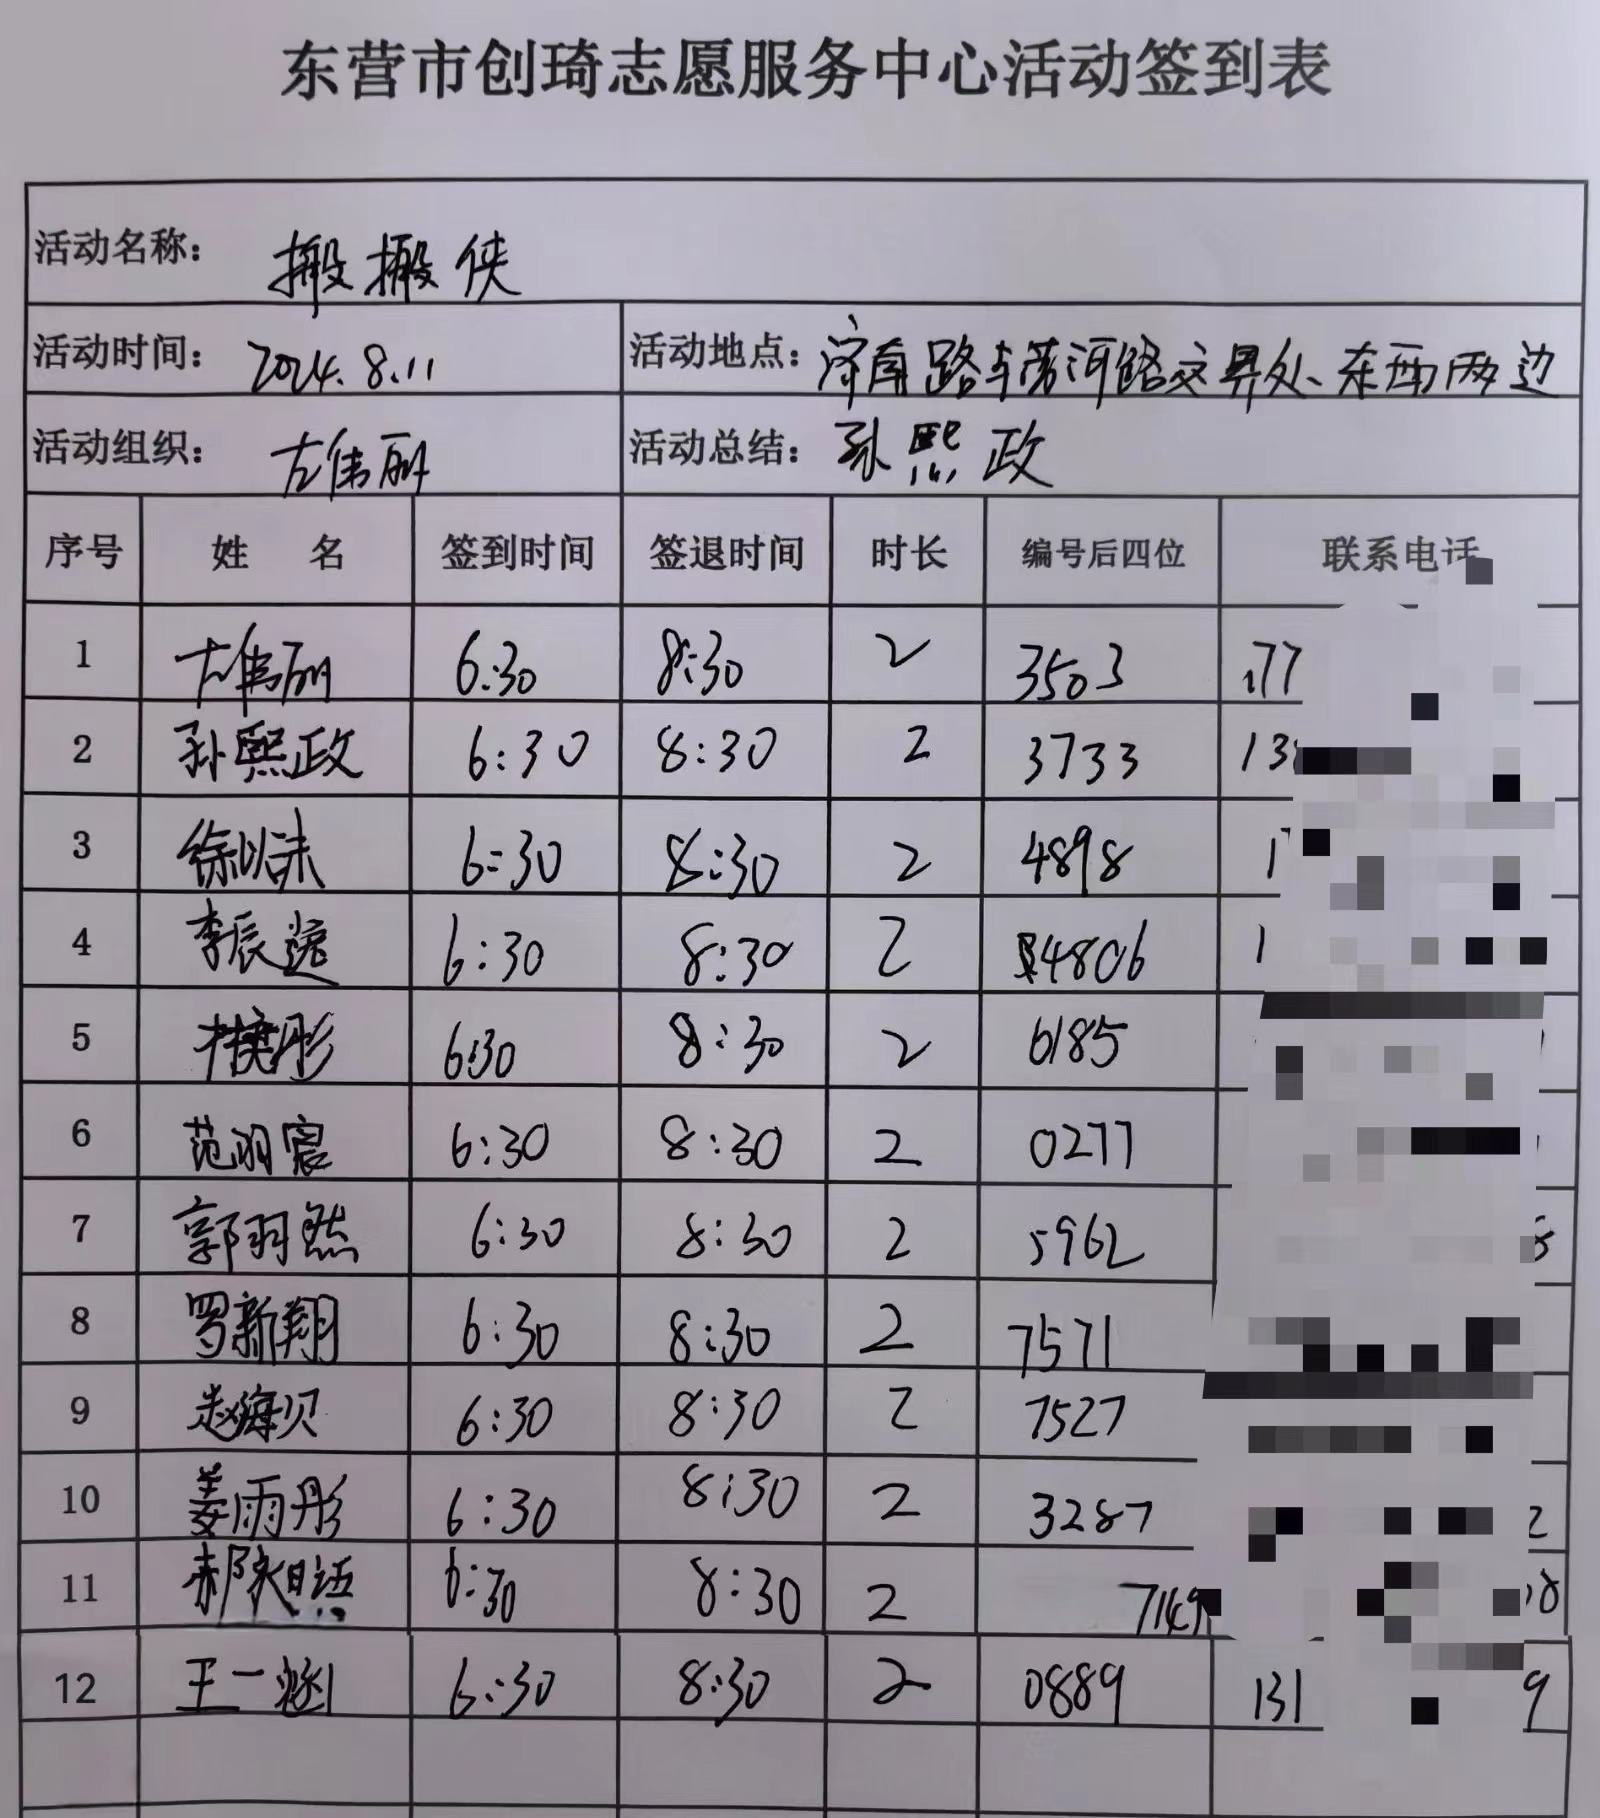 东营市创琦志愿服务中心活动签到表
活动名称： 搬搬侠
活动时间： 2024.8.11 活动地点： 济南路与黄河路交界处、东西两边
活动组织： 左伟丽 活动总结： 孙熙政
序号 姓 名 签到时间 签退时间 时长 编号后四位 联系电话
1 左伟丽 6:30 8:30 2 3503 177
2 孙熙政 6:30 8:30 2 3733 13
3 徐以沫 6:30 8:30 2 4898 1
4 李辰 6:30 8:30 2 4806 1
5 6:30 8:30 2 6185
6 范羽宸 6:30 8:30 2 0277
7 郭羽然 6:30 8:30 2 5962
8 罗新翔 6:30 8:30 2 7571
9 赵海贝 6:30 8:30 2 7527
10 姜雨彤 6:30 8:30 2 3287 2
11 6:30 8:30 2 7149 8
12 王一涵 6:30 8:30 2 0889 131 9